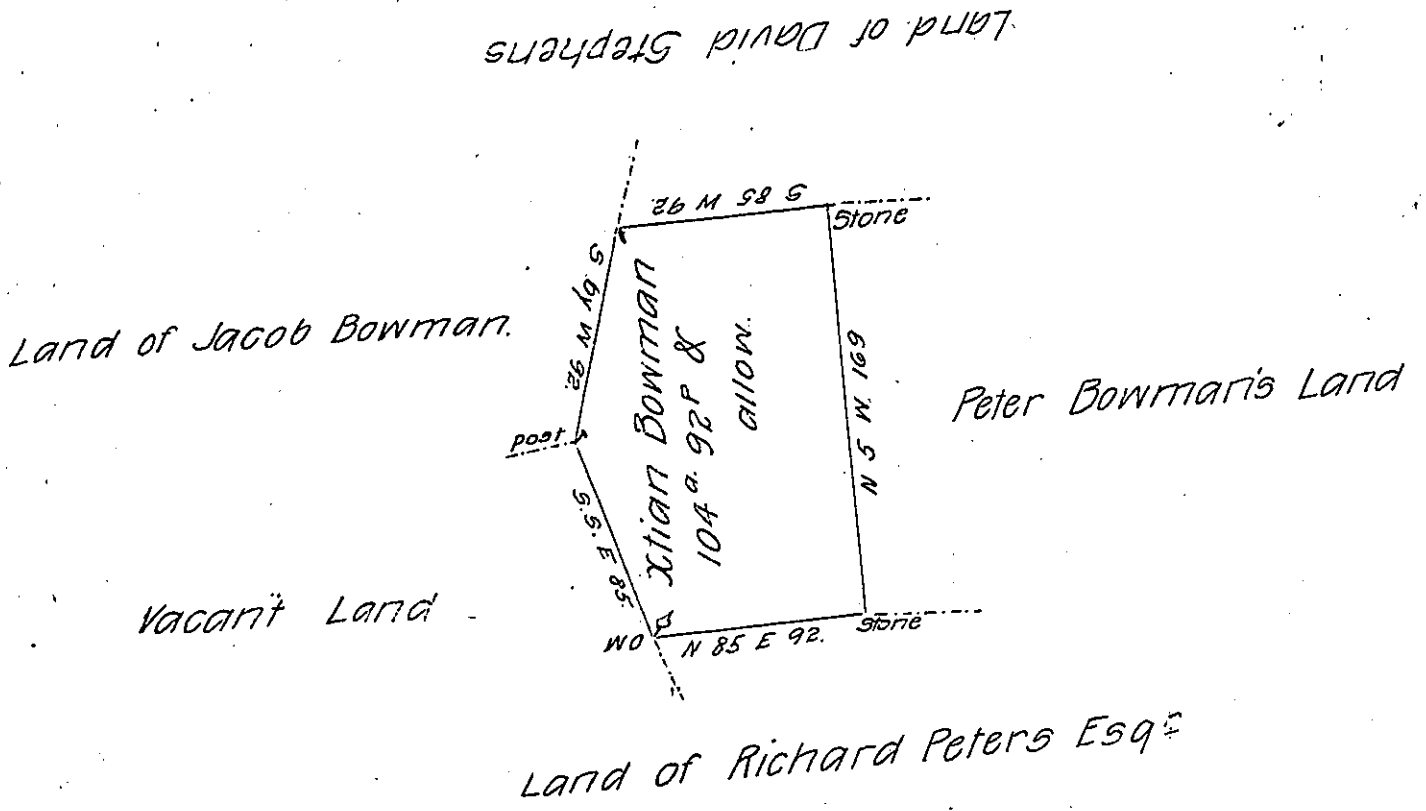 Land of David Stephens
S 85 W 92.
Stone
S by W 92.
Land of Jacob Bowman.
Xtian Bowman
104 a. 92 P &
allow.
N 5 W. 169
Peter Bowman's Land
post
S.S. E 85.
Vacant Land
WO
N 85 E 92.
Stone
Land of Richard Peters Esqr